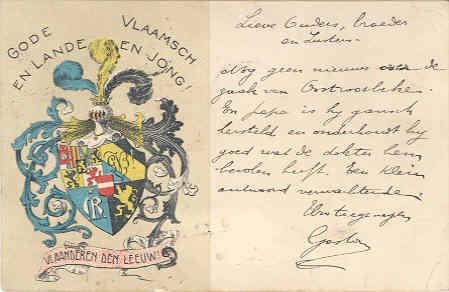 GODE VLAAMSCH
EN LANDE EN JONG!
R
VLAANDEREN DEN LEEUW!
Lieve Ouders, broeder
en Zusters.
Nog geen nieuws over de
zaak van Oostroosbeke.
En papa is hy gansch
hersteld en onderhoudt hy
goed wat de dokter hem
bevolen heeft. Een klein
antwoord verwachtende